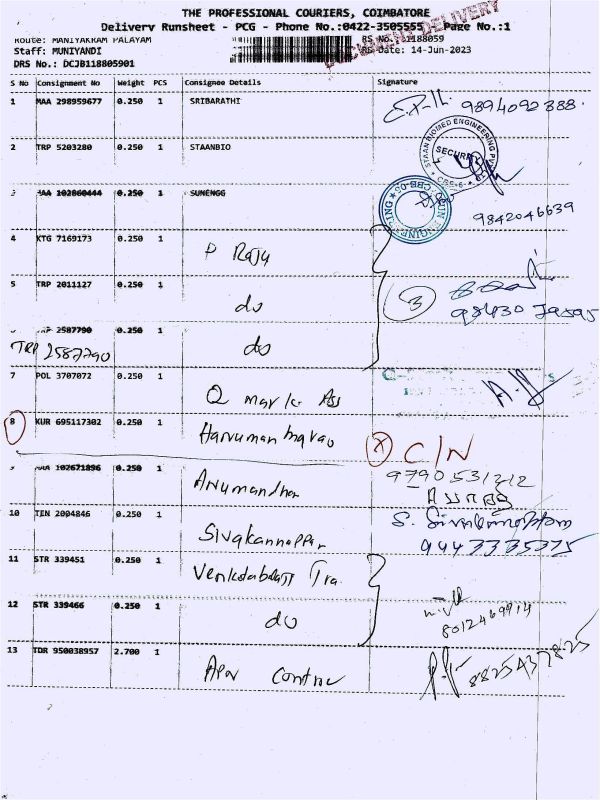 THE PROFESSIONAL COURIERS, COIMBATORE
Delivery Runsheet - PCG - Phone No.:0422-3505555 Page No.:1
Route: MANIYAKKAM PALAYAM RS No.: 1188059
Staff: MUNIYANDI RS Date: 14-Jun-2023
DRS No.: DCJB118805901
DOCUMENT DELIVERY
S No Consignment No Weight PCS Consignee Details Signature
1 MAA 298959677 0.250 1 SRIBARATHI 9894092888.
2 TRP 5203280 0.250 1 STAANBIO
STAAN BIOMED ENGINEERING PVT
SECURITY
CBE-6
3 MAA 102860444 0.250 1 SUNENGG 9842046639
4 KTG 7169173 0.250 1 P Raju
5 TRP 2011127 0.250 1 do 3 9843079595
6 TRP 2587790 0.250 1 do
TRP 2587790
7 POL 3707072 0.250 1 Q mark Ass
8 KUR 695117302 0.250 1 Hanuman X C/N
9 MAA 102671896 0.250 1 Anumandhar 9790531212
10 TEN 2004846 0.250 1 Sivakannappan S. 9443335375
11 STR 339451 0.250 1 Venkatabalaji Tra
12 STR 339466 0.250 1 do 8012469914
13 TDR 950038957 2.700 1 Apar Contruc 8825437825